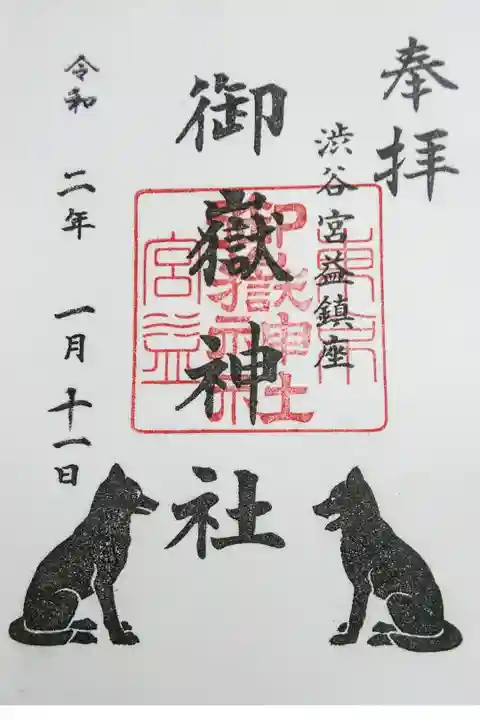 奉拝
渋谷宮益鎮座
御嶽神社
令和 二年 一月 十一日
東京
御嶽神社
宮益